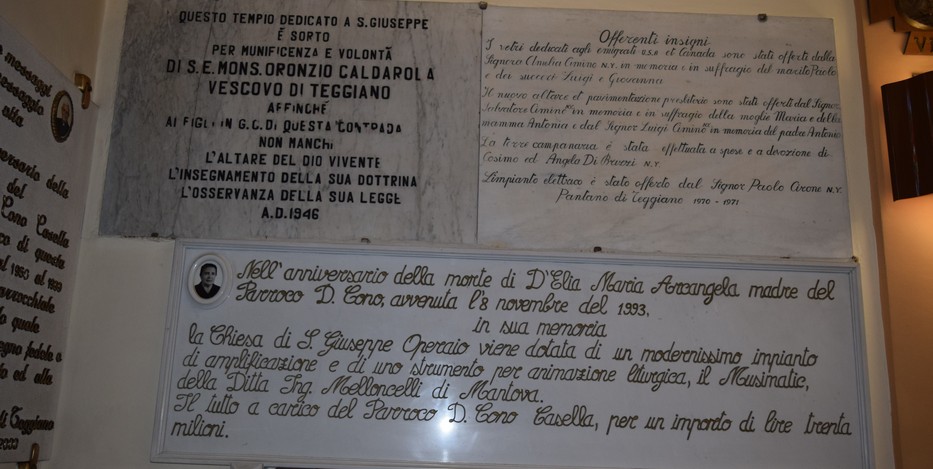 messaggi
messaggio
alta
versario della
del
Cono Casella
co di questa
al 1950 al 1999
parrocchiale
la quale
segno fedele a
do ed alla
di Teggiano
QUESTO TEMPIO DEDICATO A S.GIUSEPPE
È SORTO
PER MUNIFICENZA E VOLONTÀ
DI S.E.MONS.ORONZIO CALDAROLA
VESCOVO DI TEGGIANO
AFFINCHÈ
AI FIGLI IN G.C. DI QUESTA CONTRADA
NON MANCHI
L'ALTARE DEL DIO VIVENTE
L'INSEGNAMENTO DELLA SUA DOTTRINA
L'OSSERVANZA DELLA SUA LEGGE
A.D.1946
Offerenti insigni
I vetri dedicati agli emigrati U.S.A. et Canada sono stati offerti dalla
Signora Amelia Cimino N.Y. in memoria e in suffragio del marito Paolo
e dei suoceri Luigi e Giovanna
Il nuovo altare et pavimentazione presbiterio sono stati offerti dal Signor
Salvatore Cimino N.Y. in memoria e in suffragio della moglie Maria e della
mamma Antonia e dal Signor Luigi Cimino N.Y. in memoria del padre Antonio
La torre campanaria è stata effettuata a spese e a devozione di
Cosimo ed Angelo Di N.Y.
L'impianto elettrico è stato offerto dal Signor Paolo Cirone N.Y.
Pantano di Teggiano 1970 - 1971
Nell'anniversario della morte di D'Elia Maria Arcangela madre del
Parroco D. Cono, avvenuta l'8 novembre del 1993,
in sua memoria
la Chiesa di S. Giuseppe Operaio viene dotata di un modernissimo impianto
di amplificazione e di uno strumento per animazione liturgica, il Musimatic,
della Ditta Ing. Melloncelli di Mantova.
Il tutto a carico del Parroco D. Cono Casella, per un importo di lire trenta
milioni.
VI